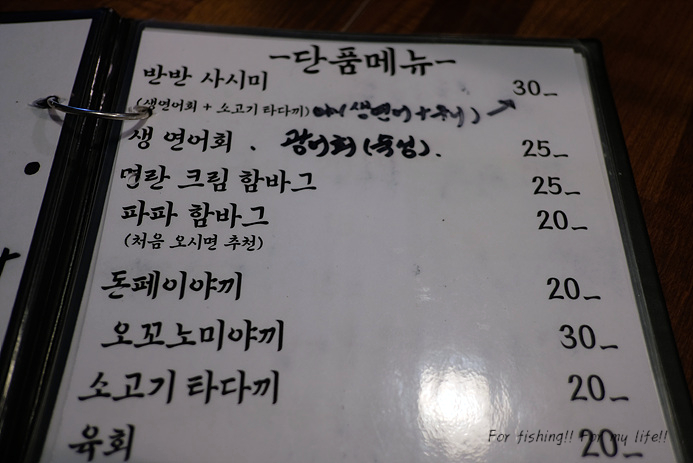 -단품메뉴-
반반 사시미 30_
(생연어회 + 소고기 타다끼) 생연어 +
생 연어회 . 광어회 (숙성). 25_
명란 크림 함바그 25_
파파 함바그 20_
(처음 오시면 추천)
돈페이야끼 20_
오꼬노미야끼 30_
소고기 타다끼 20_
육회 20_
For fishing!! For my life!!